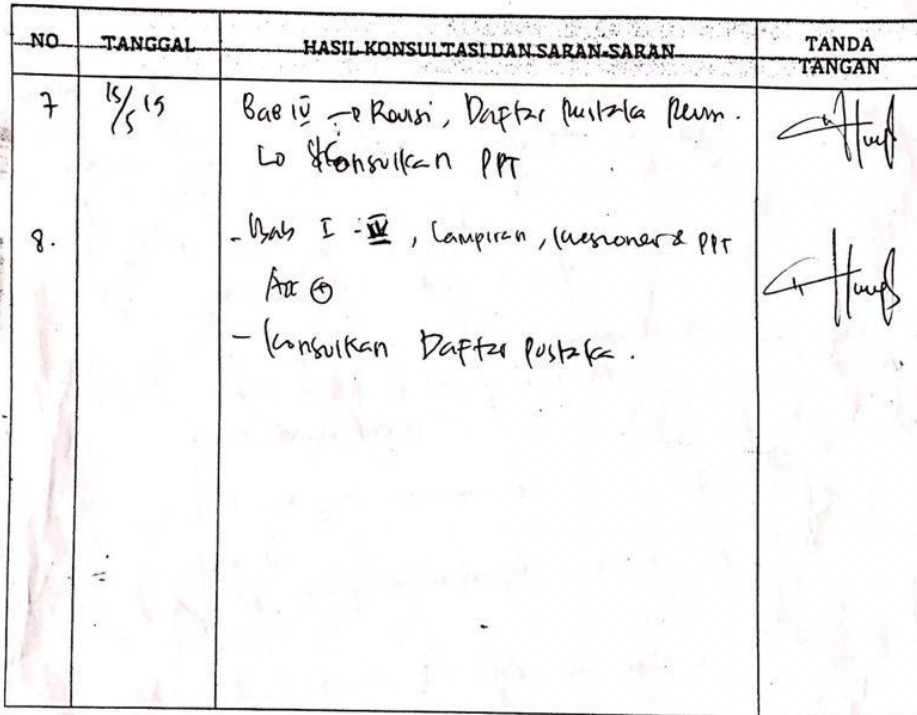 NO TANGGAL HASIL KONSULTASI DAN SARAN-SARAN TANDA TANGAN
7 15/5 19 Bab IV → Revisi, Daftar Pustaka
↳ Konsulkan PPT
8. - Bab I - IV, Lampiran, Kuesioner & PPT
Acc
- Konsulkan Daftar Pustaka.